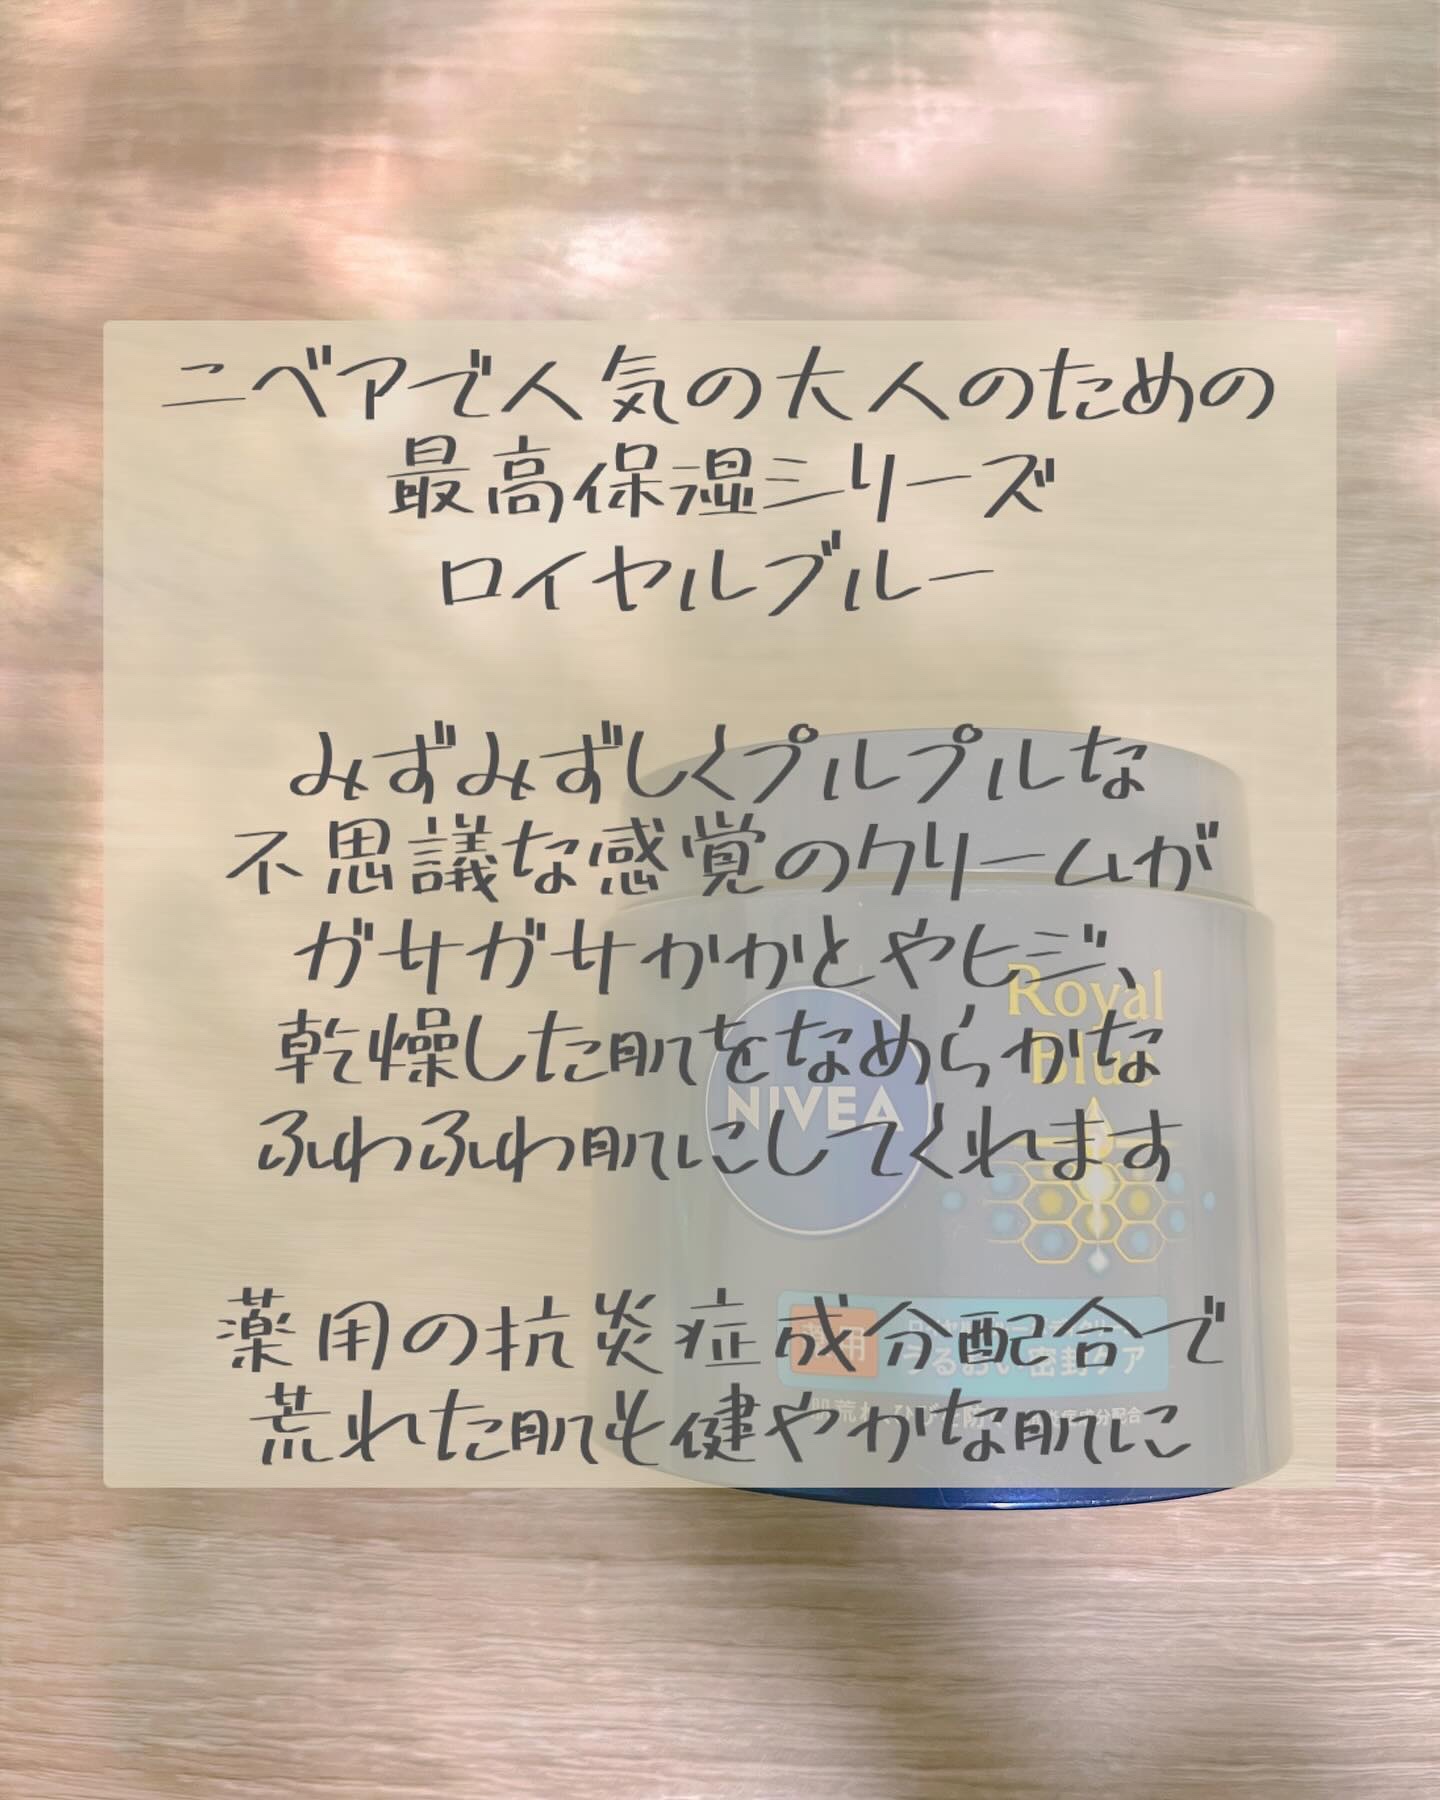 ニベアで人気の大人のための
最高保湿シリーズ
ロイヤルブルー
みずみずしくプルプルな
不思議な感覚のクリームが
ガサガサかかとやヒジ、
乾燥した肌をなめらかな
ふわふわ肌にしてくれます
薬用の抗炎症成分配合で
荒れた肌も健やかな肌に
Royal
Blue
NIVEA
薬用
うるおい密封ケア